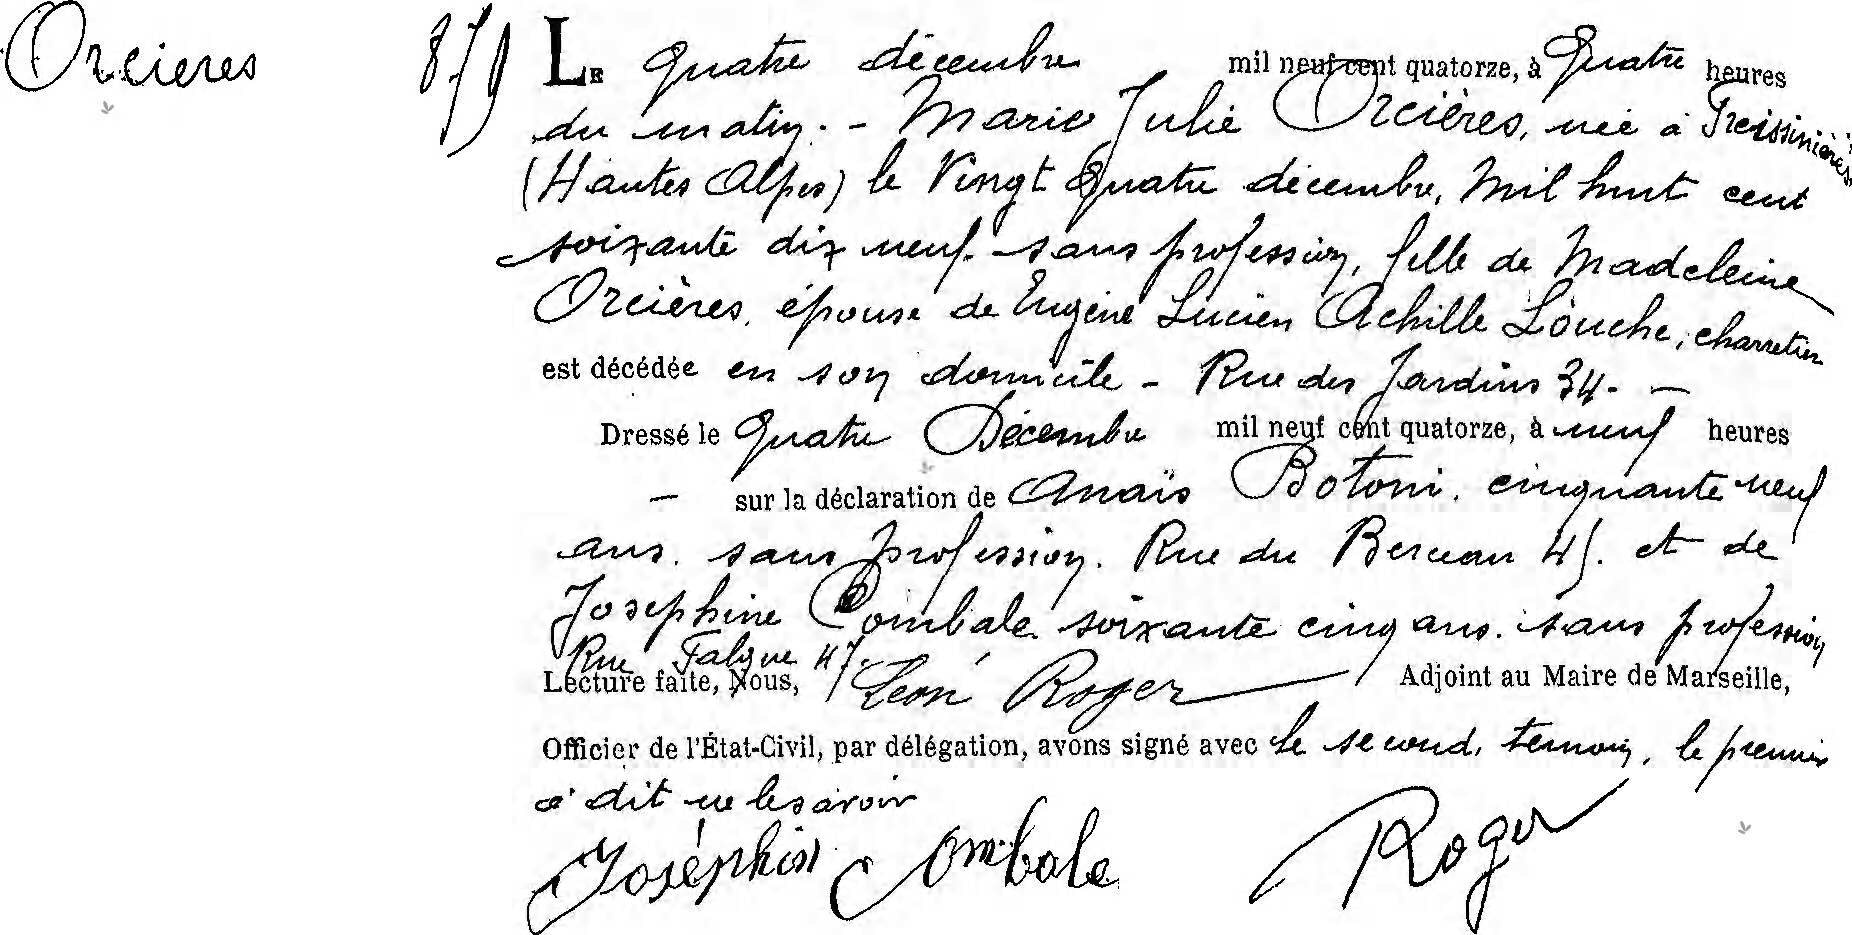 Orcieres 879
LE quatre décembre mil neuf cent quatorze, à quatre heures
du matin. - Marie Julie Orcières, née à Freissinières
(Hautes Alpes) le Vingt quatre décembre, mil huit cent
soixante dix neuf. sans profession, fille de Madeleine
Orcières, épouse de Eugène Lucien Achille Louche, charretier
est décédée en son domicile - Rue des Jardins 34. -
Dressé le quatre Décembre mil neuf cent quatorze, à neuf heures
- sur la déclaration de Anaïs Botoni, cinquante neuf
ans. sans profession. Rue du Berceau 45. et de
Joséphine Combale soixante cinq ans. sans profession
Rue Falque 47.
Lecture faite, Nous, Léon Roger Adjoint au Maire de Marseille,
Officier de l'État-Civil, par délégation, avons signé avec le second, témoin, le premier
a dit ne le savoir
Joséphin Combale Roger